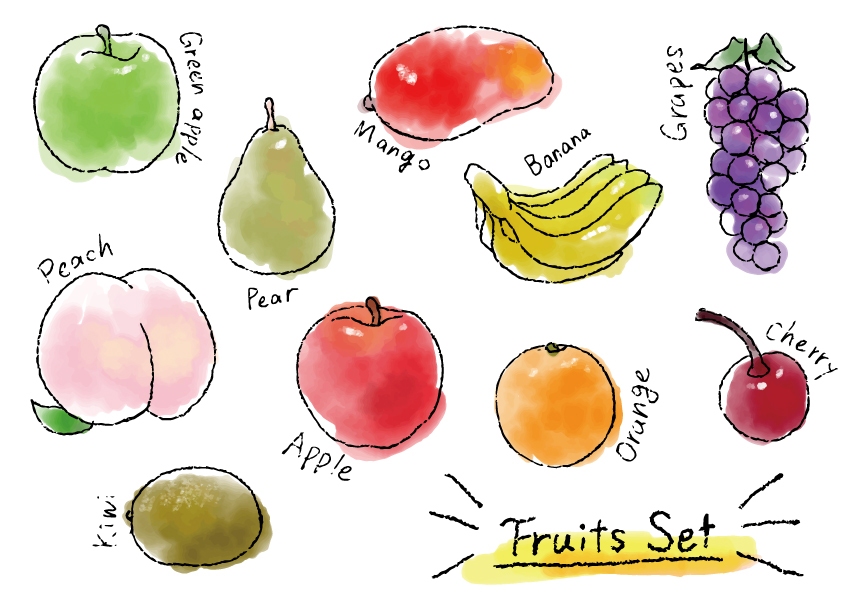 Green apple
Mango
Grapes
Banana
Pear
Peach
Apple
Orange
Cherry
Kiwi
Fruits Set